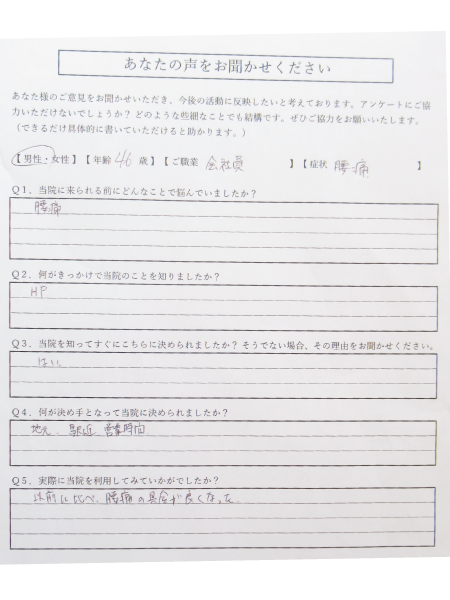 あなたの声をお聞かせください
あなた様のご意見をお聞かせいただき、今後の活動に反映したいと考えております。アンケートにご協
力いただけないでしょうか？どのような些細なことでも結構です。ぜひご協力をお願いいたします。
（できるだけ具体的に書いていただけると助かります。）
【男性・女性】【年齢 46 歳】【ご職業 会社員 】【症状 腰痛 】
Q1．当院に来られる前にどんなことで悩んでいましたか？
腰痛
Q2．何がきっかけで当院のことを知りましたか？
HP
Q3．当院を知ってすぐにこちらに決められましたか？そうでない場合、その理由をお聞かせください。
はい
Q4．何が決め手となって当院に決められましたか？
地元、駅近 営業時間
Q5．実際に当院を利用してみていかがでしたか？
以前に比べ、腰痛の具合が良くなった